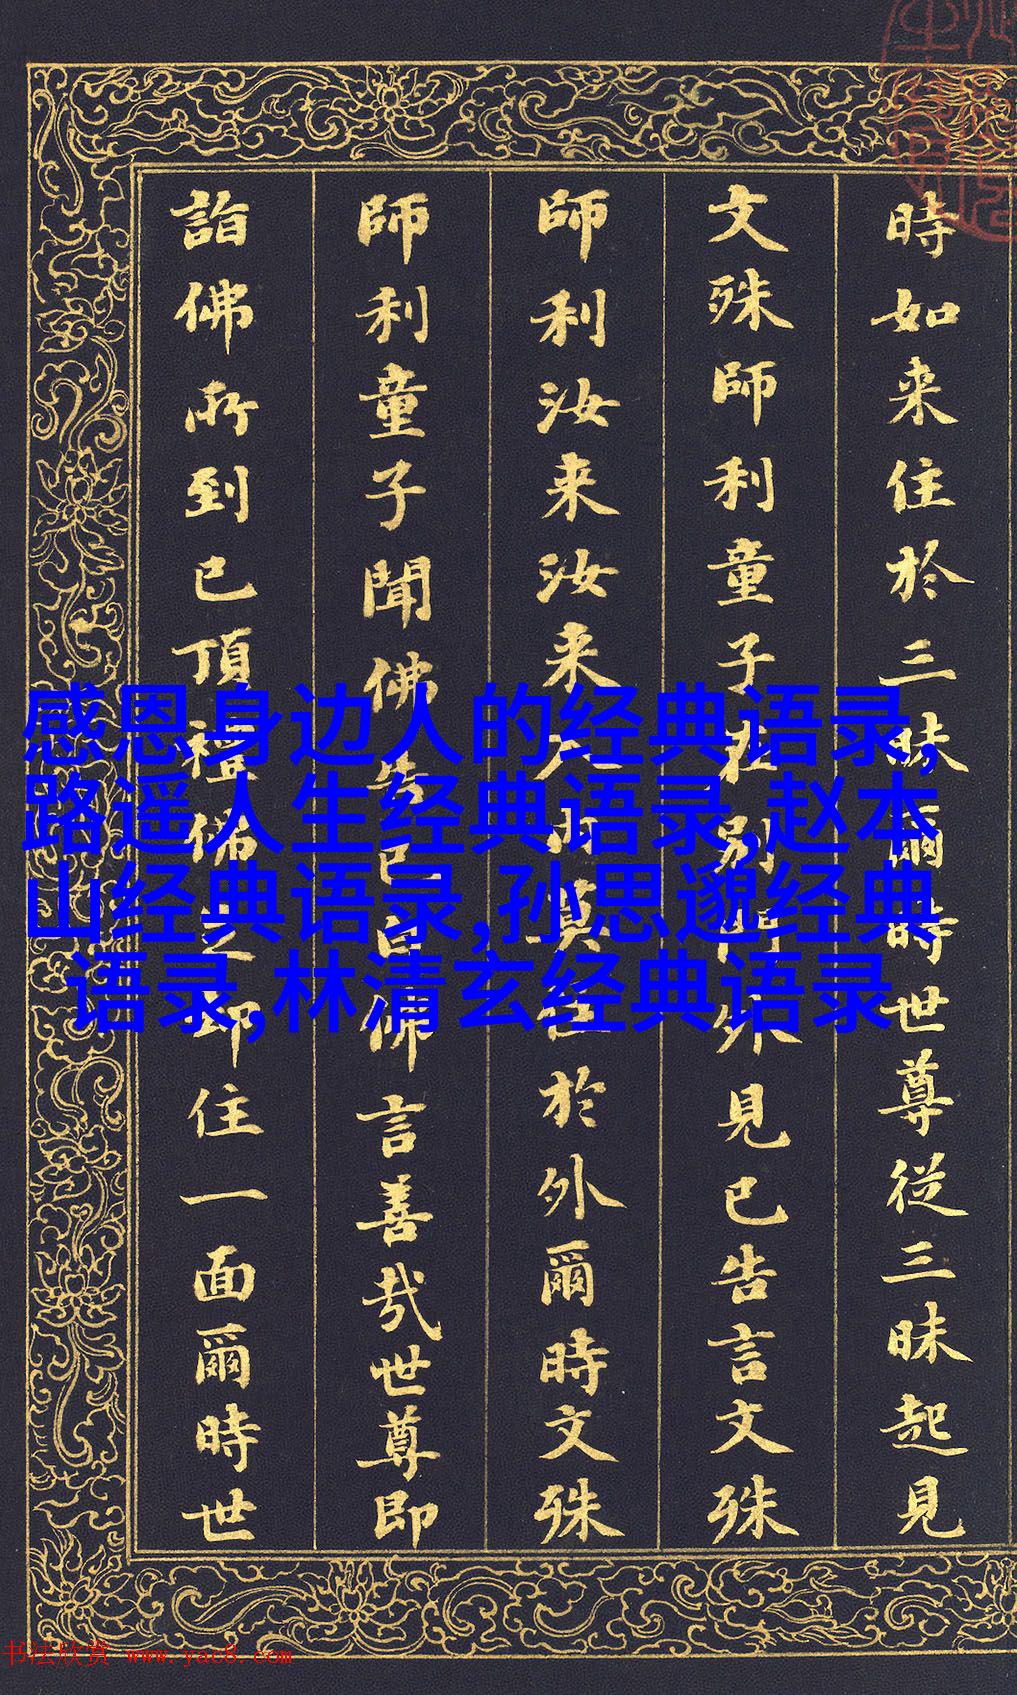 時如来住於三昧爾時世尊従三昧起見
文殊師利童子別門外見已告言文殊
師利汝来汝来入内莫住於外爾時文殊
師利童子聞佛告已白佛言善哉世尊即
詣佛所到已頂禮佛足却住一面爾時世
感恩身边人的经典语录,
路遥人生经典语录,赵本
山经典语录,孙思邈经典
语录,林清玄经典语录
书法欣赏 www.yac8.com